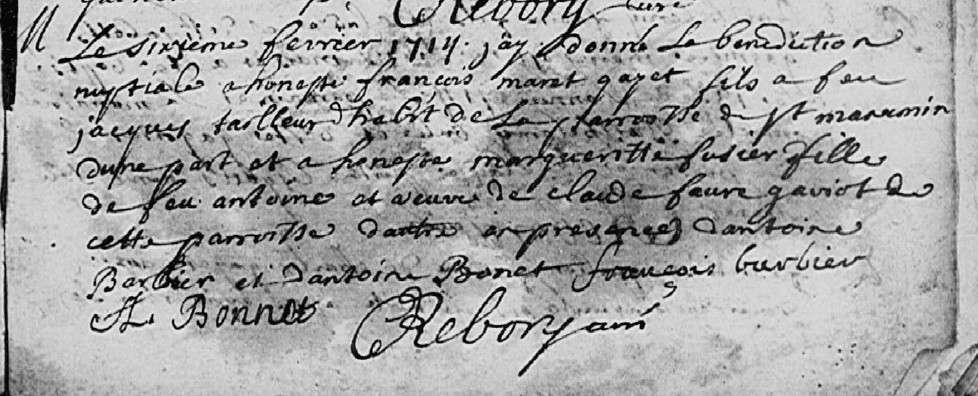 Rebory curé
M
Le sixieme fevrier 1714 j'ay donné Le benediction
nuptiale a honeste francois maret gayet fils a feu
jacques tailleur d'habit de La parroisse de st maxumin
dune part et a honeste margueritte fusier fille
de feu antoine et veuve de claude faure gaviot de
cette parroisse dautre en presences dantoine
Barbier et dantoine Bonet francois burbier
A. Bonnet Rebory curé